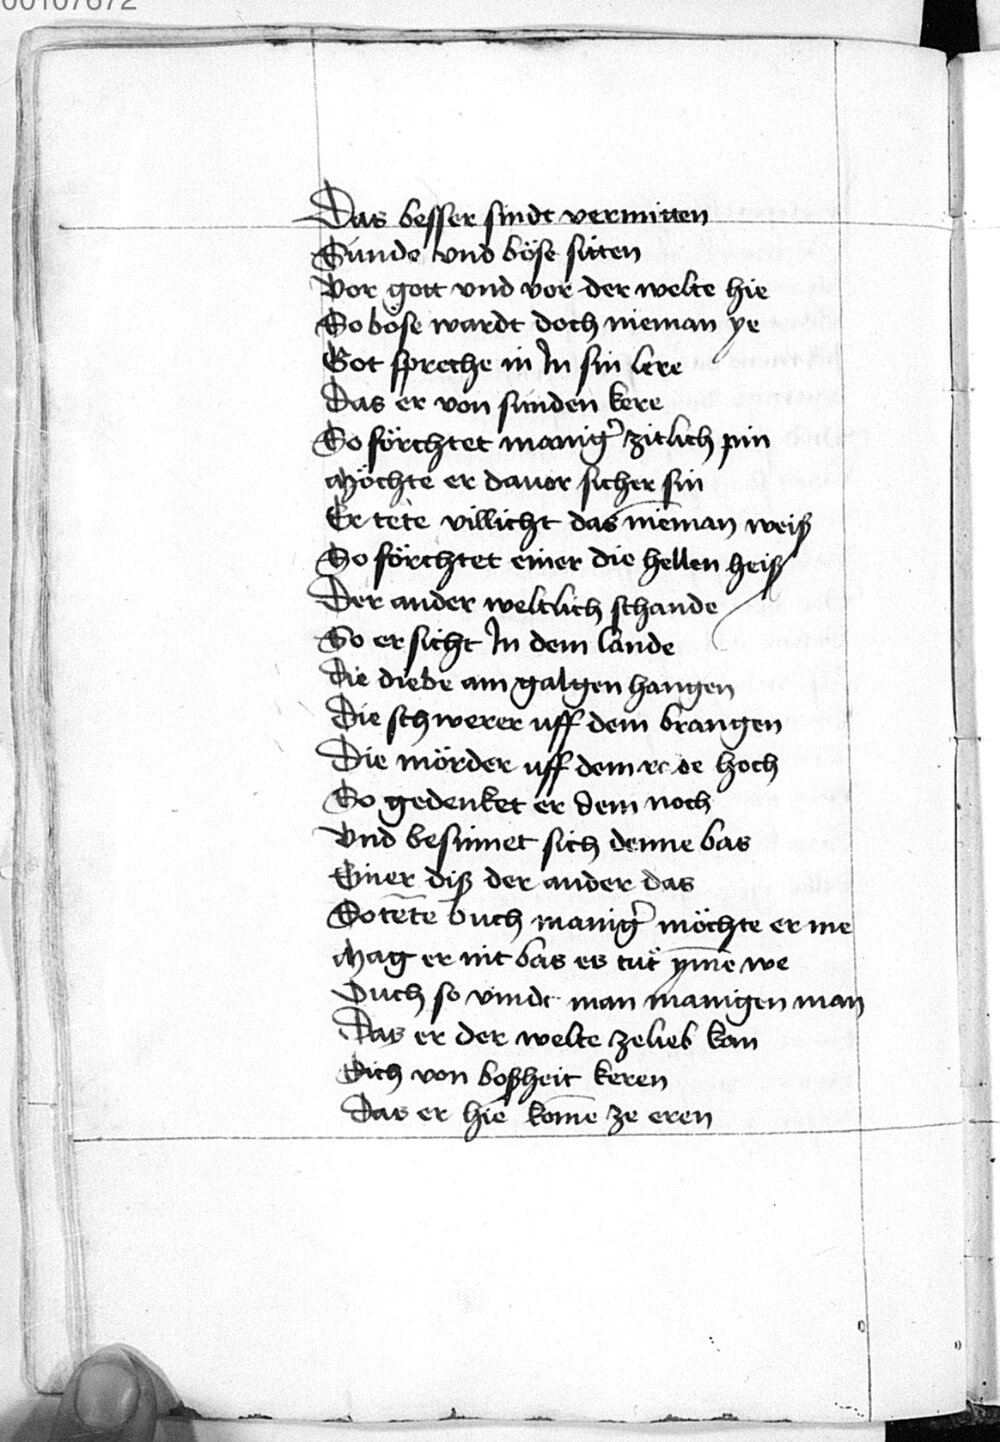 00107672
Das besser sindt vermitten
Sünde vnd böse sitten
Vor gott vnd vor der welte hie
So böse wardt doch nieman ye
Got spreche in In sin lere
Das er von sünden kere
So förchtet manig' zitlich pin
Möchte er dauor sicher sin
Er tete villicht das nieman weiß
So förchtet einer die hellen heiß
Der ander weltlich schande
So er sicht In dem lande
Die diebe am galgen hangen
Die schwerer uff dem brangen
Die mörder uff dem rede hoch
So gedenket er dem noch
Vnd besinnet sich denne bas
Einer diß der ander das
So tete ouch manig' möchte er me
Mag er nit bas es tut yme we
Ouch so vindt man manigen man
Das er der welte zelieb kan
Sich von boßheit keren
Das er hie kome ze eren